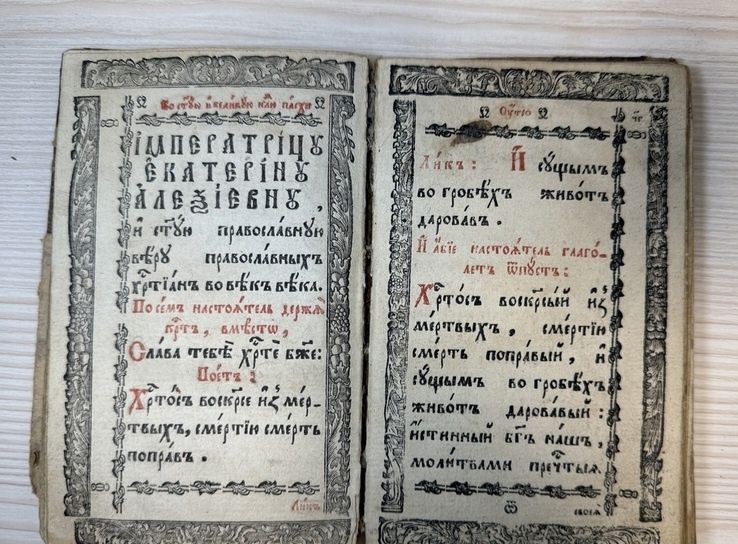 Во ст҃ую и҆ вели́кую нл҃ю па́схи
І҆МПЕРАТРІ́ЦУ
Є҆КАТЕРІ́НУ
А҆ЛЕѮІ́ЕВНУ,
и҆ ст҃ꙋю правосла́вную
вѣ́рꙋ правосла́вныхъ
хрⷭ҇тїа́нъ во вѣ́къ вѣ́ка.
По се́мъ настоѧ́тель держѧ̀
крⷭ҇тъ, вмѣ́стѡ,
Сла́ва тебѣ̀ хрⷭ҇тѐ бж҃е:
Пое́тъ:
Хрⷭ҇то́съ воскр҃се и҆з̾ ме́р-
твыхъ, сме́ртїю сме́рть
попра́въ.
Ли́къ
Оу҆́трѡ
Ли́къ: И҆ сꙋ́щымъ
во гробѣ́хъ живо́тъ
дарова́въ.
И҆ а҆́бїе настоѧ́тель глаго́-
летъ ѿпꙋ́стъ:
Хрⷭ҇то́съ воскр҃сый и҆з̾
ме́ртвыхъ, сме́ртїю
сме́рть попра́вый, и҆
сꙋ́щымъ во гробѣ́хъ
живо́тъ дарова́вый:
и҆́стинный бг҃ъ на́шъ,
моли́твами пречⷭ҇тыѧ
ѿ
своеѧ̀